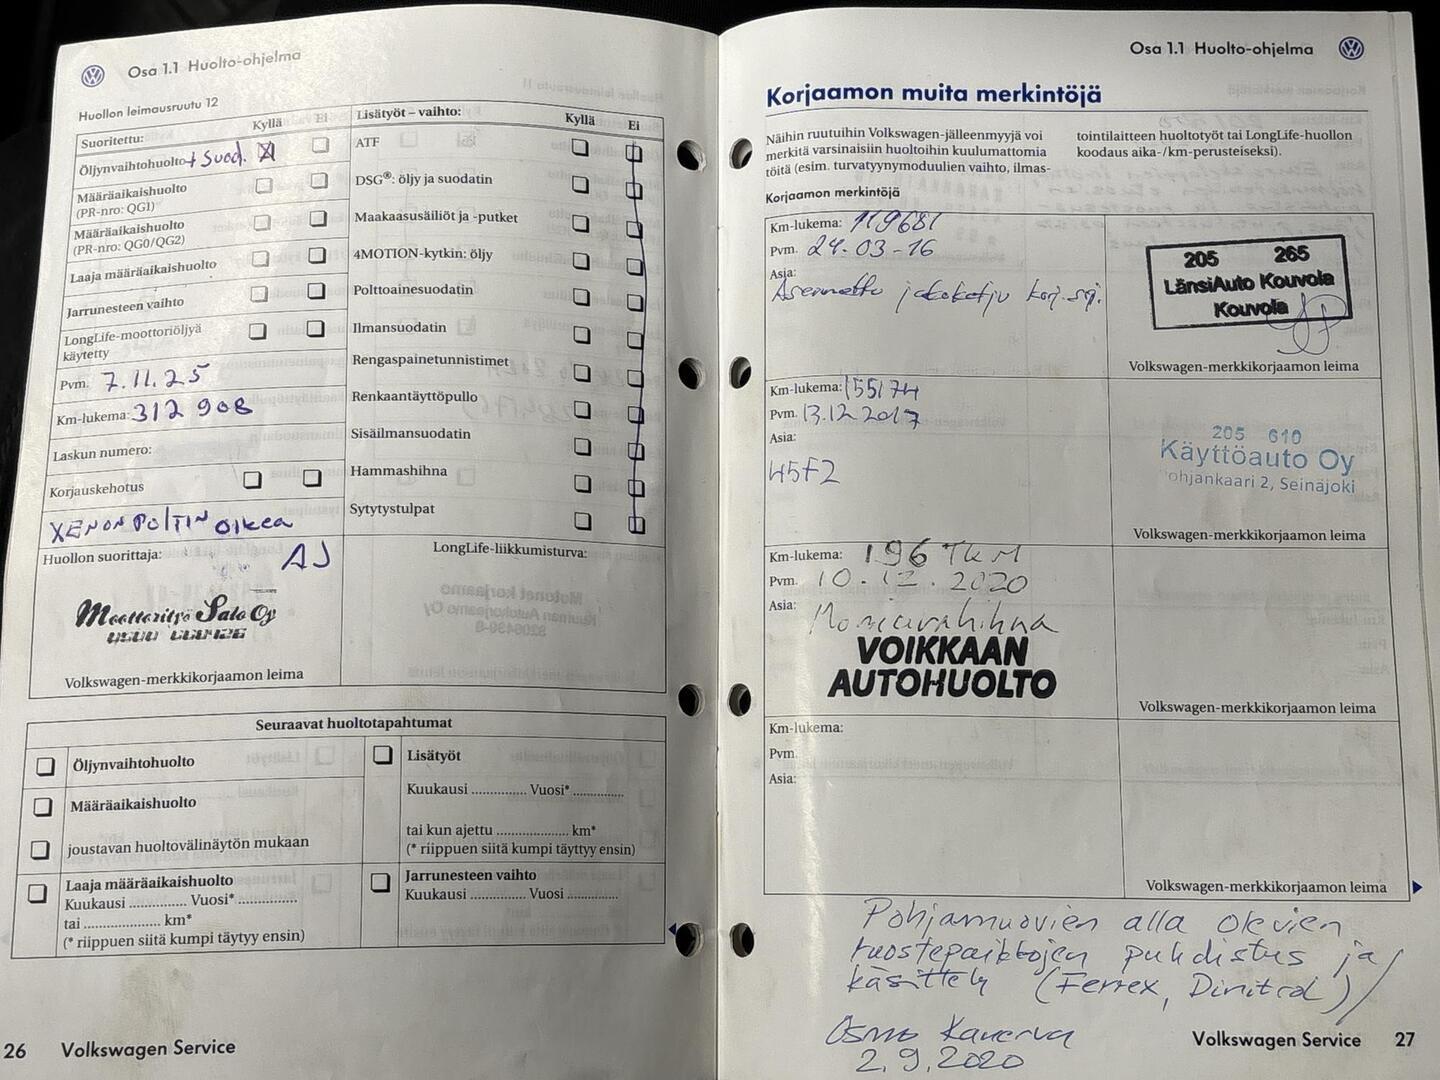 Osa 1.1 Huolto-ohjelma
Huollon leimausruutu 12
Suoritettu: Kyllä Ei
Öljynvaihtohuolto + Suod. X
Määräaikaishuolto
(PR-nro: QG1)
Määräaikaishuolto
(PR-nro: QG0/QG2)
Laaja määräaikaishuolto
Jarrunesteen vaihto
LongLife-moottoriöljyä
käytetty
Pvm. 7.11.25
Km-lukema: 312 908
Laskun numero:
Korjauskehotus
XENON POLTIN oikea
Huollon suorittaja: AJ
Moottorityö Salo Oy
Volkswagen-merkkikorjaamon leima
Lisätyöt – vaihto: Kyllä Ei
ATF
DSG®: öljy ja suodatin
Maakaasusäiliöt ja -putket
4MOTION-kytkin: öljy
Polttoainesuodatin
Ilmansuodatin
Rengaspainetunnistimet
Renkaantäyttöpullo
Sisäilmansuodatin
Hammashihna
Sytytystulpat
LongLife-liikkumisturva:
Seuraavat huoltotapahtumat
Öljynvaihtohuolto
Määräaikaishuolto
joustavan huoltovälinäytön mukaan
Laaja määräaikaishuolto
Kuukausi .............. Vuosi* ..............
tai ................... km*
(* riippuen siitä kumpi täytyy ensin)
Lisätyöt
Kuukausi ............. Vuosi* ............
tai kun ajettu .................. km*
(* riippuen siitä kumpi täyttyy ensin)
Jarrunesteen vaihto
Kuukausi ............. Vuosi ............
26 Volkswagen Service
Osa 1.1 Huolto-ohjelma
Korjaamon muita merkintöjä
Näihin ruutuihin Volkswagen-jälleenmyyjä voi
merkitä varsinaisiin huoltoihin kuulumattomia
töitä (esim. turvatyynymoduulien vaihto, ilmas-
tointilaitteen huoltotyöt tai LongLife-huollon
koodaus aika-/km-perusteiseksi).
Korjaamon merkintöjä
Km-lukema: 119681
Pvm. 24-03-16
Asia:
Asennettu jakoketju korj.srj.
205 265
LänsiAuto Kouvola
Kouvola
Volkswagen-merkkikorjaamon leima
Km-lukema: 155174
Pvm. 13.12.2017
Asia:
45F2
205 610
Käyttöauto Oy
ohjankaari 2, Seinäjoki
Volkswagen-merkkikorjaamon leima
Km-lukema: 196 TKM
Pvm. 10.12.2020
Asia: Moniurahihna
VOIKKAAN
AUTOHUOLTO
Volkswagen-merkkikorjaamon leima
Km-lukema:
Pvm.
Asia:
Volkswagen-merkkikorjaamon leima
Pohjamuovien alla olevien
ruostepaikkojen puhdistus ja
käsittely (Ferrex, Dinitrol)
Osmo Kanerva
2.9.2020
Volkswagen Service 27